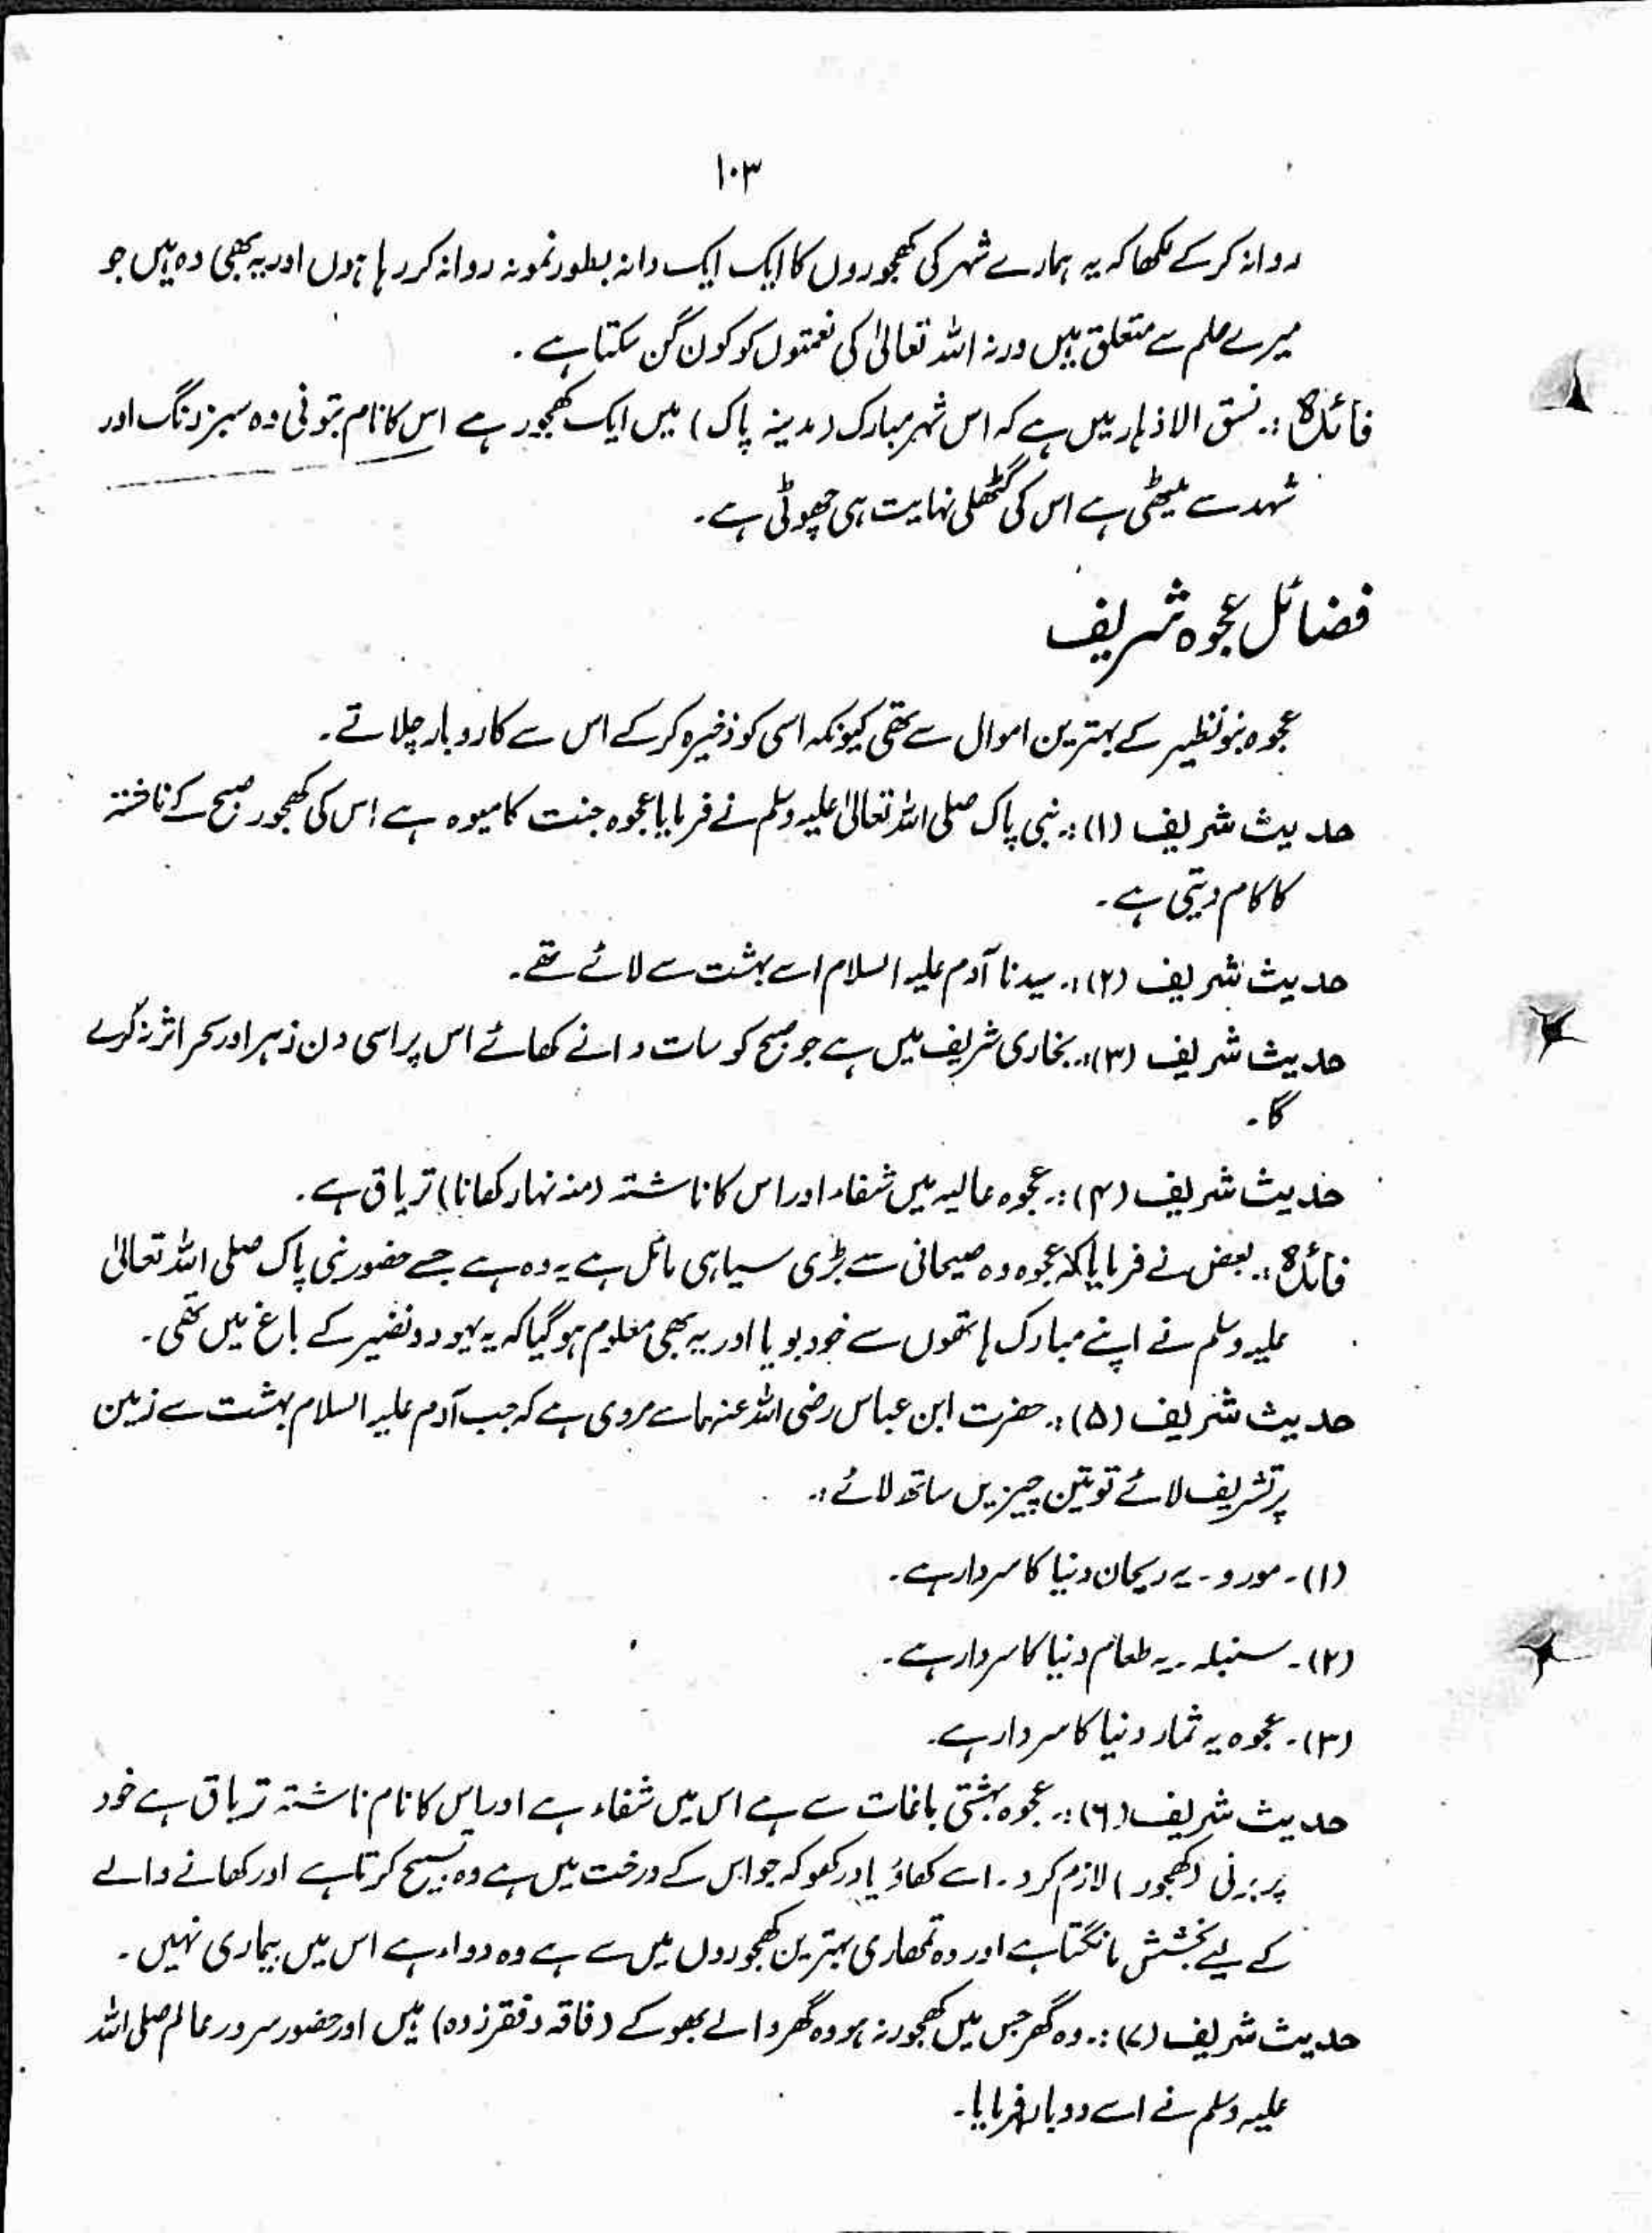 ۱۰۳
روانہ کرکے لکھا کہ یہ ہمارے شہر کی کھجوروں کا ایک ایک دانہ بطور نمونہ روانہ کر رہا ہوں اور یہ بھی وہ ہیں جو
میرے علم سے متعلق ہیں ورنہ اللہ تعالیٰ کی نعمتوں کو کون گن سکتا ہے ۔
فائدہ :۔ نسق الازہار میں ہے کہ اس شہر مبارک (مدینہ پاک) میں ایک کھجور ہے اس کا نام بتونی وہ سبز رنگ اور
شہد سے میٹھی ہے اس کی گٹھلی نہایت ہی چھوٹی ہے۔
فضائل عجوہ شریف
عجوہ بنو نظیر کے بہترین اموال سے تھی کیونکہ اسی کو ذخیرہ کرکے اس سے کاروبار چلاتے ۔
حدیث شریف (۱) :۔ نبی پاک صلی اللہ تعالیٰ علیہ وسلم نے فرمایا عجوہ جنت کا میوہ ہے اس کی کھجور صبح کے ناشتہ
کا کام دیتی ہے ۔
حدیث شریف (۲) :۔ سیدنا آدم علیہ السلام اسے بہشت سے لائے تھے۔
حدیث شریف (۳) :۔ بخاری شریف میں ہے جو صبح کو سات دانے کھائے اس پر اسی دن زہر اور سحر اثر نہ کرے
گا ۔
حدیث شریف (۴) :۔ عجوہ عالیہ میں شفاء اور اس کا ناشتہ (منہ نہار کھانا) تریاق ہے ۔
فائدہ :۔ بعض نے فرمایا کہ عجوہ وہ صیحانی سے بڑی سیاہی مائل ہے یہ وہ ہے جسے حضور نبی پاک صلی اللہ تعالیٰ
علیہ وسلم نے اپنے مبارک ہاتھوں سے خود بویا اور یہ بھی معلوم ہو گیا کہ یہ یہود ونضیر کے باغ میں تھی ۔
حدیث شریف (۵) :۔ حضرت ابن عباس رضی اللہ عنہما سے مروی ہے کہ جب آدم علیہ السلام بہشت سے زمین
پر تشریف لائے تو تین چیزیں ساتھ لائے :۔
(۱)۔ مورو ۔ یہ ریحان دنیا کا سردار ہے ۔
(۲)۔ سنبلہ ۔ یہ طعام دنیا کا سردار ہے ۔
(۳)۔ عجوہ یہ ثمار دنیا کا سردار ہے۔
حدیث شریف (۶) :۔ عجوہ بہشتی باغات سے ہے اس میں شفاء ہے اور اس کا نام ناشتہ تریاق ہے خود
پر برنی (کھجور) لازم کرو ۔ اسے کھاؤ یاد رکھو کہ جو اس کے درخت میں ہے وہ تسبیح کرتا ہے اور کھانے والے
کے لیے بخشش مانگتا ہے اور وہ تمھاری بہترین کھجوروں میں سے ہے وہ دواء ہے اس میں بیماری نہیں ۔
حدیث شریف (۷) :۔ وہ گھر جس میں کھجور نہ ہو وہ گھر والے بھوکے (فاقہ وفقر زدہ) ہیں اور حضور سرور عالم صلی اللہ
علیہ وسلم نے اسے دوبار فرمایا۔